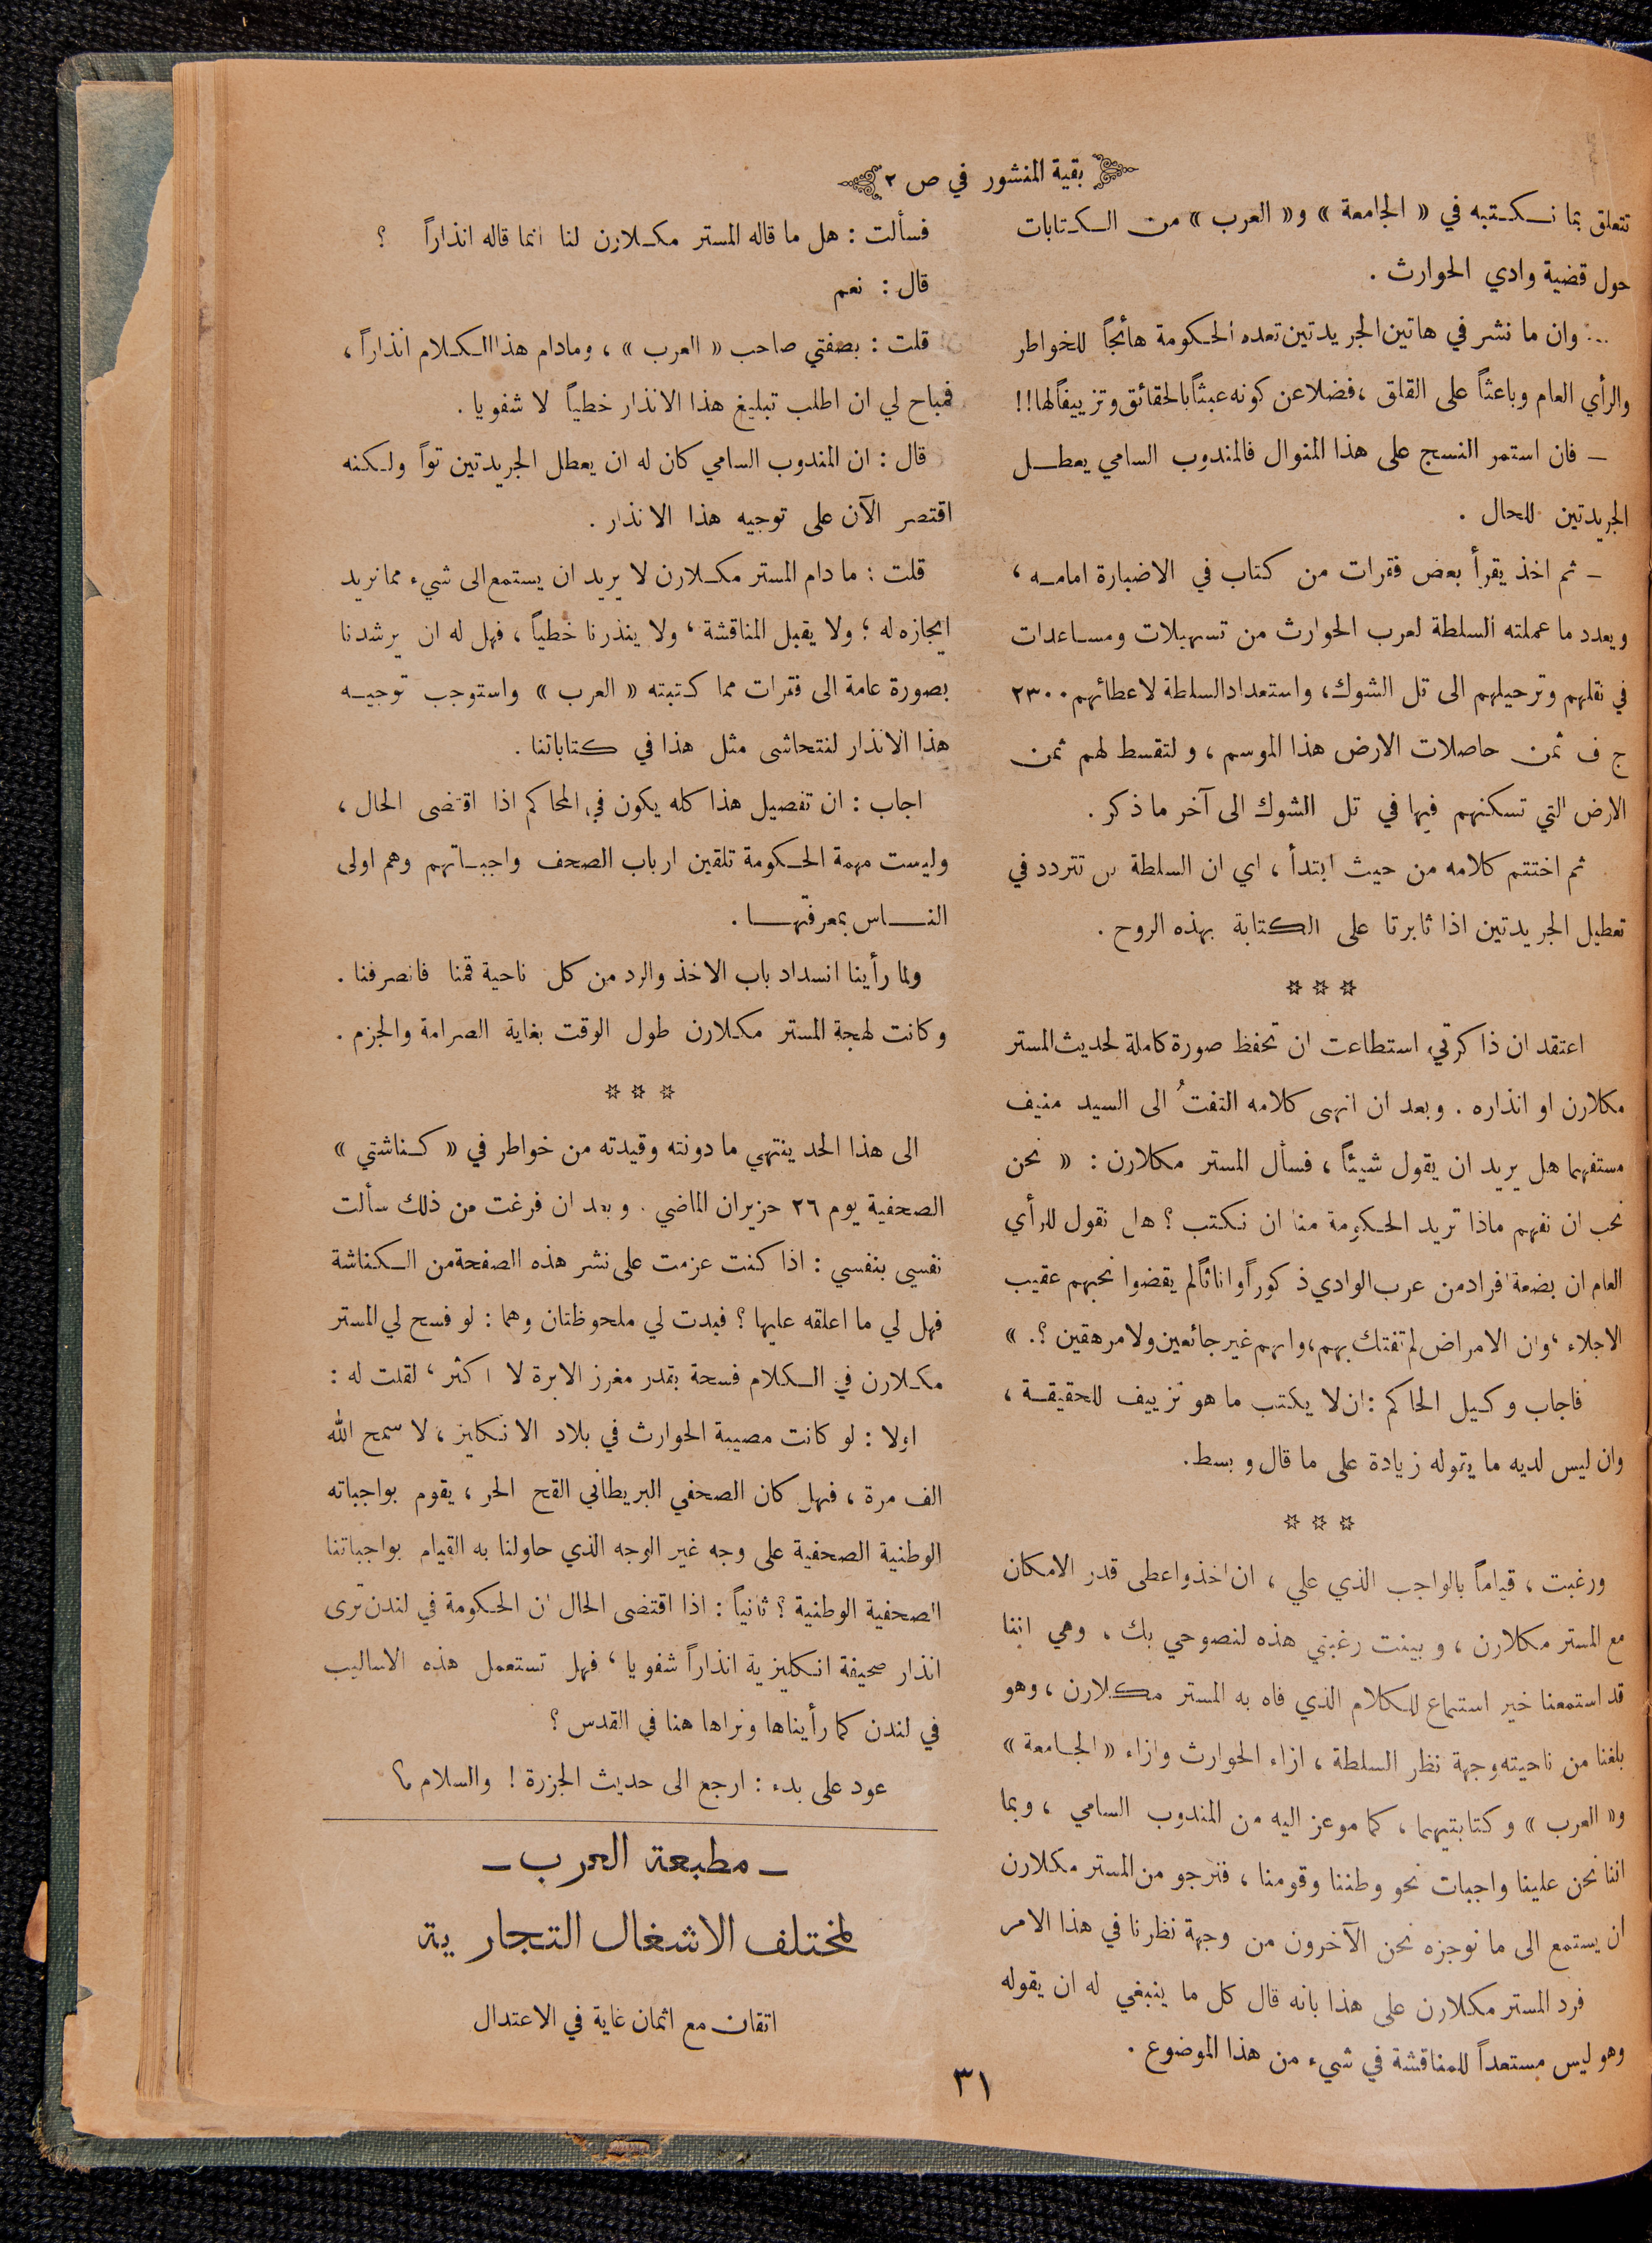 بقية المنشور في ص ٢
تتعلق بما نكتبه في « الجامعة » و« العرب » من الكتابات
حول قضية وادي الحوارث .
... وان ما نشر في هاتين الجريدتين تعده الحكومة هائجاً للخواطر
والرأي العام وباعثاً على القلق ، فضلا عن كونه عبثاً بالحقائق وتزييفاً لها !!
ـ فان استمر النسج على هذا المنوال فالمندوب السامي يعطل
الجريدتين للحال .
ـ ثم اخذ يقرأ بعض فقرات من كتاب في الاضبارة امامه ،
ويعدد ما عملته السلطة لعرب الحوارث من تسهيلات ومساعدات
في نقلهم وترحيلهم الى تل الشوك ، واستعداد السلطة لاعطائهم ٢٣٠٠
ج ف ثمن حاصلات الارض هذا الموسم ، ولتقسط لهم ثمن
الارض التي تسكنهم فيها في تل الشوك الى آخر ما ذكر .
ثم اختتم كلامه من حيث ابتدأ ، اي ان السلطة تتردد في
تعطيل الجريدتين اذا ثابرتا على الكتابة بهذه الروح .
☆ ☆ ☆
اعتقد ان ذاكرتي استطاعت ان تحفظ صورة كاملة لحديث المستر
مكلارن او انذاره . وبعد ان انهى كلامه التفتُ الى السيد منيف
مستفهما هل يريد ان يقول شيئاً ، فسأل المستر مكلارن : « نحن
نحب ان نفهم ماذا تريد الحكومة منا ان نكتب ؟ هل نقول للرأي
العام ان بضعة افراد من عرب الوادي ذكوراً واناثاً لم يقضوا نحبهم عقيب
الاجلاء ، وان الامراض لم تفتك بهم ، وانهم غير جائعين ولا مرهقين ؟. »
فاجاب وكيل الحاكم : ان لا يكتب ما هو تزييف للحقيقة ،
وان ليس لديه ما يقوله زيادة على ما قال وبسط.
☆ ☆ ☆
ورغبت ، قياماً بالواجب الذي علي ، ان اخذ واعطى قدر الامكان
مع المستر مكلارن ، وبينت رغبتي هذه لنصوحي بك ، وهي اننا
قد استمعنا خير استماع للكلام الذي فاه به المستر مكلارن ، وهو
بلغنا من ناحيته وجهة نظر السلطة ، ازاء الحوارث وازاء « الجامعة »
و« العرب » وكتابتيهما ، كما موعز اليه من المندوب السامي ، وبما
اننا نحن علينا واجبات نحو وطننا وقومنا ، فنرجو من المستر مكلارن
ان يستمع الى ما نوجزه نحن الآخرون من وجهة نظرنا في هذا الامر
فرد المستر مكلارن على هذا بانه قال كل ما ينبغي له ان يقوله
وهو ليس مستعداً للمناقشة في شيء من هذا الموضوع .
فسألت : هل ما قاله المستر مكلارن لنا انما قاله انذاراً ؟
قال : نعم
قلت : بصفتي صاحب « العرب » ، ومادام هذا الكلام انذاراً ،
فمباح لي ان اطلب تبليغ هذا الانذار خطياً لا شفويا .
قال : ان المندوب السامي كان له ان يعطل الجريدتين تواً ولكنه
اقتصر الآن على توجيه هذا الانذار .
قلت : ما دام المستر مكلارن لا يريد ان يستمع الى شيء مما نريد
ايجازه له ؛ ولا يقبل المناقشة ، ولا ينذرنا خطياً ، فهل له ان يرشدنا
بصورة عامة الى فقرات مما كتبته « العرب » واستوجب توجيه
هذا الانذار لنتحاشى مثل هذا في كتاباتنا .
اجاب : ان تفصيل هذا كله يكون في المحاكم اذا اقتضى الحال ،
وليست مهمة الحكومة تلقين ارباب الصحف واجباتهم وهم اولى
الناس بمعرفتها .
ولما رأينا انسداد باب الاخذ والرد من كل ناحية قمنا فانصرفنا .
وكانت لهجة المستر مكلارن طول الوقت بغاية الصرامة والجزم .
☆ ☆ ☆
الى هذا الحد ينتهي ما دونته وقيدته من خواطر في « كناشتي »
الصحفية يوم ٢٦ حزيران الماضي . وبعد ان فرغت من ذلك سألت
نفسي بنفسي : اذا كنت عزمت على نشر هذه الصفحة من الكناشة
فهل لي ما اعلقه عليها ؟ فبدت لي ملحوظتان وهما : لو فسح لي المستر
مكلارن في الكلام فسحة بقدر مغرز الابرة لا اكثر ، لقلت له :
اولا : لو كانت مصيبة الحوارث في بلاد الانكليز ، لا سمح الله
الف مرة ، فهل كان الصحفي البريطاني القح الحر ، يقوم بواجباته
الوطنية الصحفية على وجه غير الوجه الذي حاولنا به القيام بواجباتنا
الصحفية الوطنية ؟ ثانياً : اذا اقتضى الحال ان الحكومة في لندن ترى
انذار صحيفة انكليزية انذاراً شفويا ، فهل تستعمل هذه الاساليب
في لندن كما رأيناها ونراها هنا في القدس ؟
عود على بدء : ارجع الى حديث الجزرة ! والسلام ؟
ـ مطبعة العرب ـ
لمختلف الاشغال التجارية
اتقان مع اثمان غاية في الاعتدال
٣١